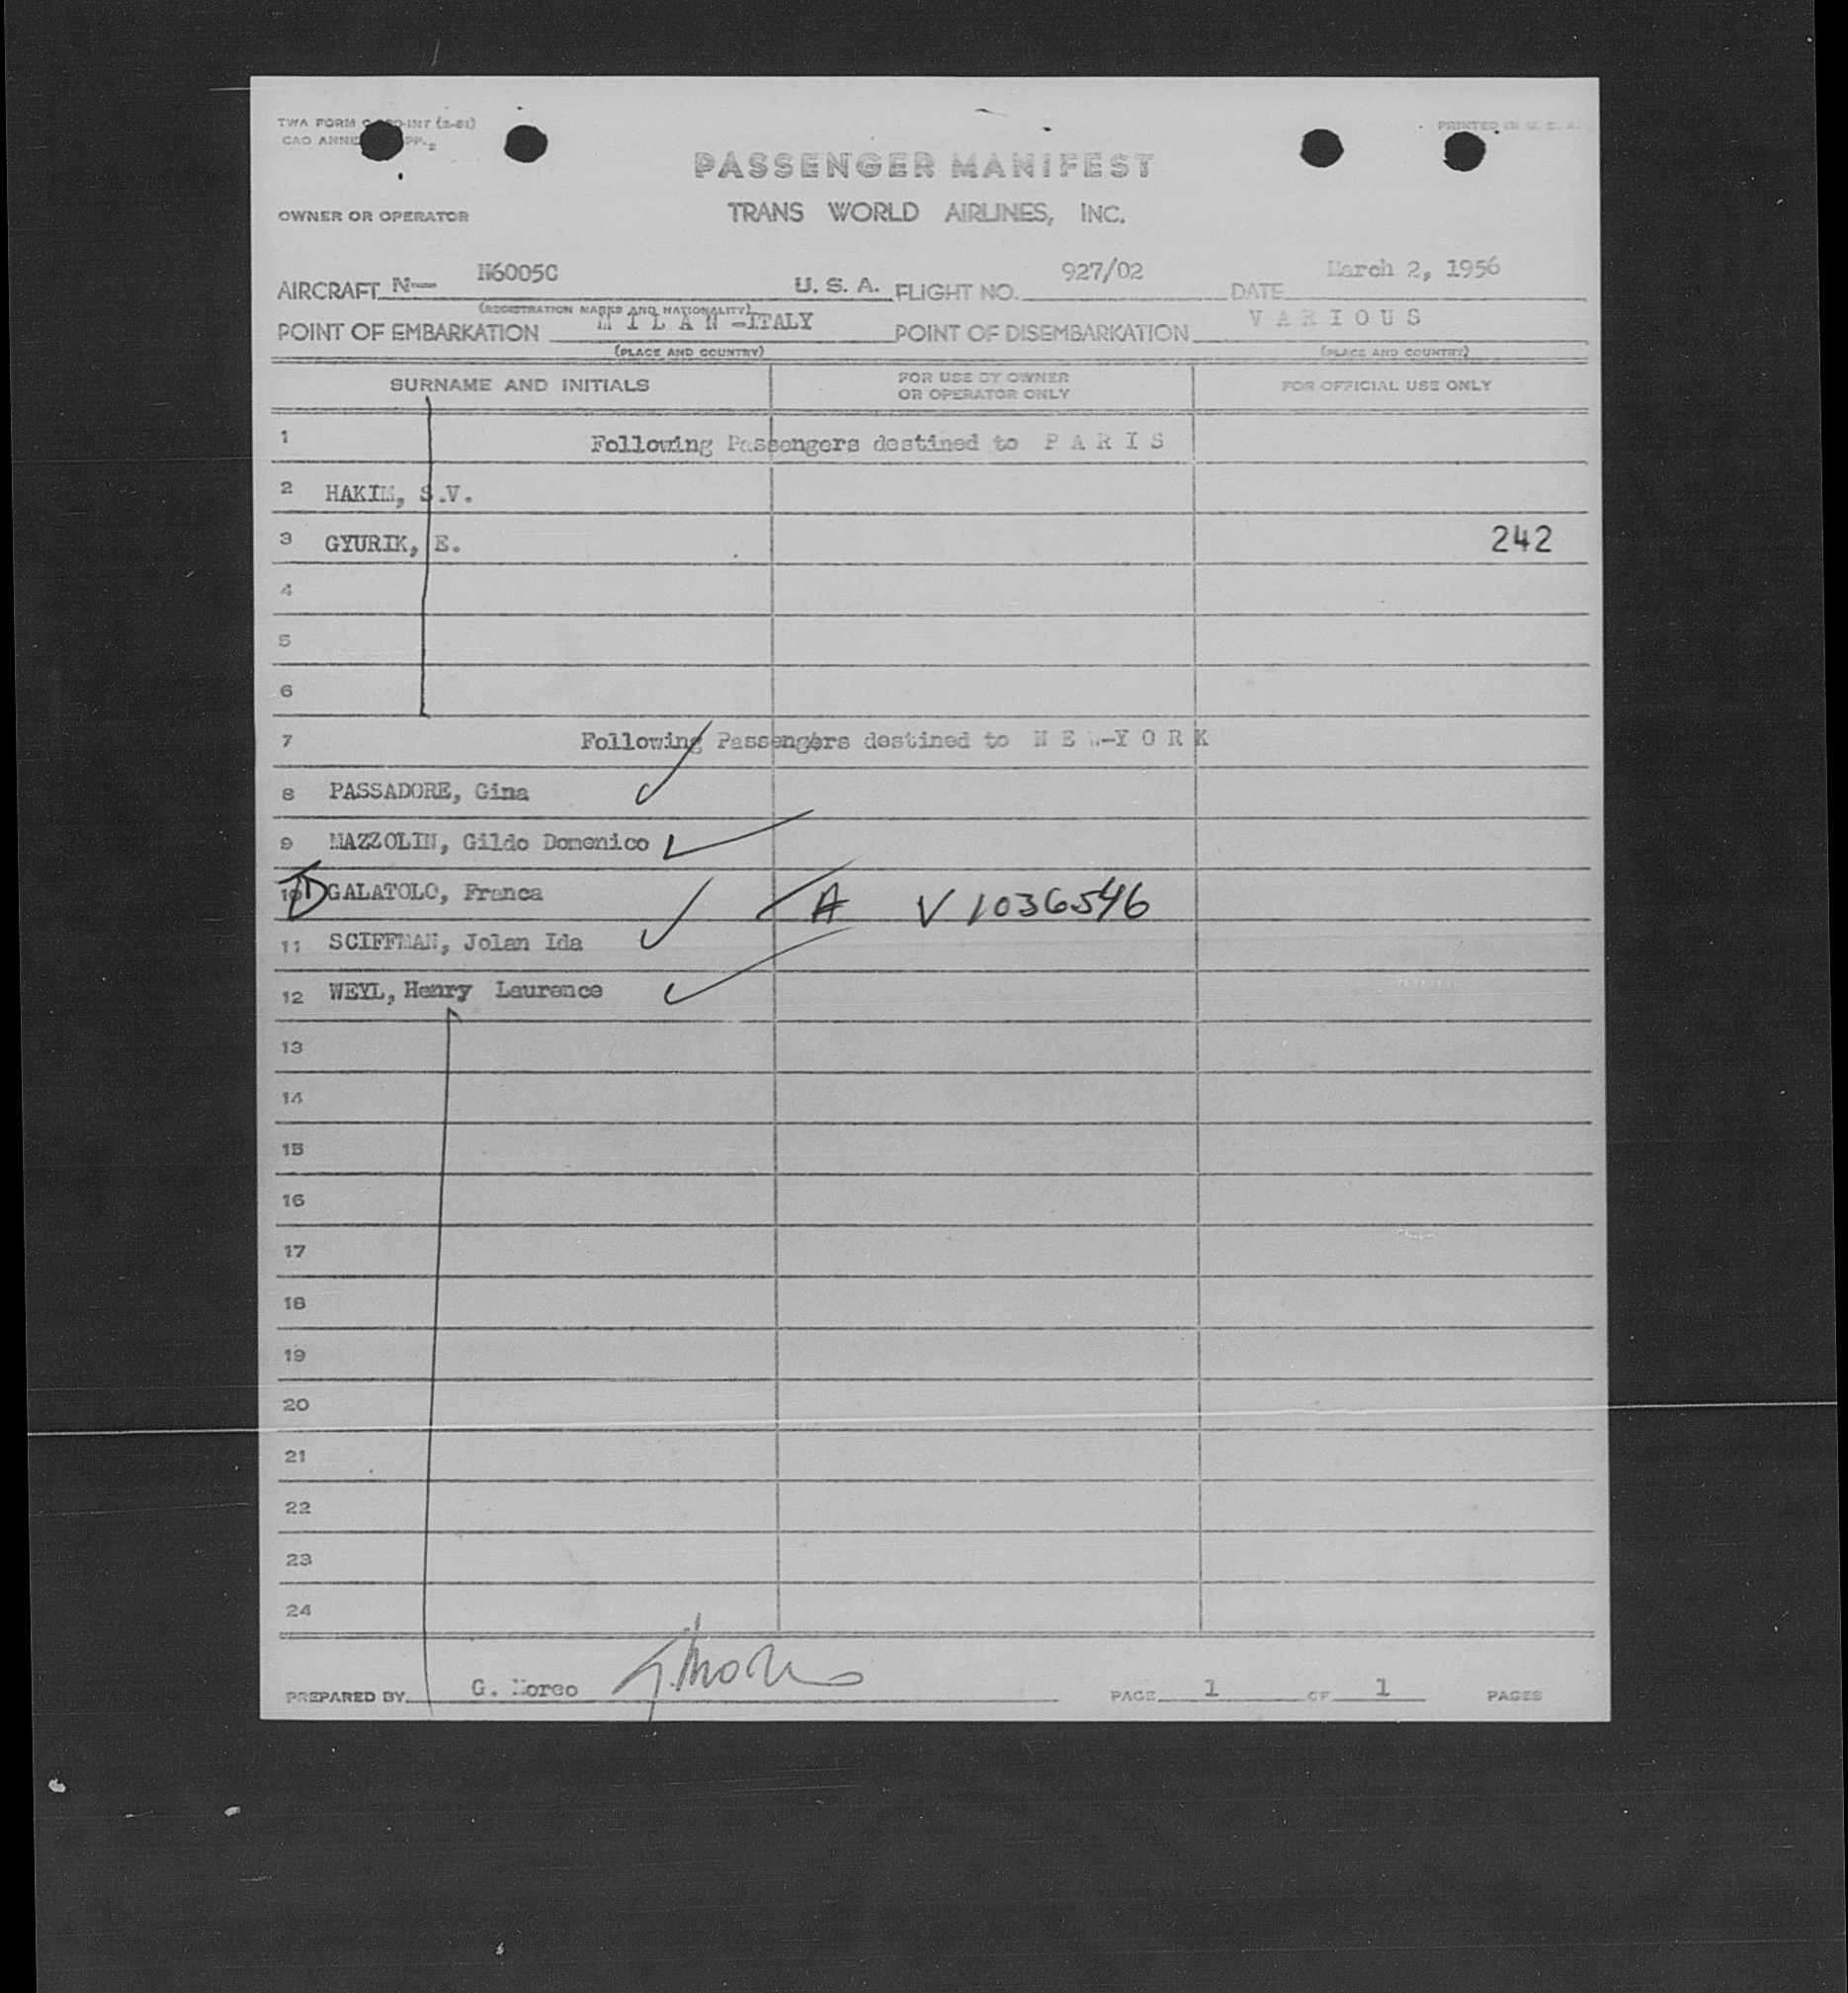 TWA FORM (2-51)
PRINTED IN U. S. A.
CAO
PASSENGER MANIFEST
OWNER OR OPERATOR
TRANS WORLD AIRLINES, INC.
AIRCRAFT N— N6005C U. S. A. FLIGHT NO. 927/02 DATE March 2, 1956
(REGISTRATION MARKS AND NATIONALITY)
POINT OF EMBARKATION M I L A N -ITALY POINT OF DISEMBARKATION V A R I O U S
(PLACE AND COUNTRY) (PLACE AND COUNTRY)
SURNAME AND INITIALS FOR USE BY OWNER OR OPERATOR ONLY FOR OFFICIAL USE ONLY
1 Following Passengers destined to P A R I S
2 HAKIM, S.V.
3 GYURIK, E. 242
4
5
6
7 Following Passengers destined to N E W-Y O R K
8 PASSADORE, Gina
9 MAZZOLIN, Gildo Domenico
10 GALATOLO, Franca A V 1036546
11 SCIFFMAN, Jolan Ida
12 WEYL, Henry Laurence
13
14
15
16
17
18
19
20
21
22
23
24
PREPARED BY G. PAGE 1 OF 1 PAGES